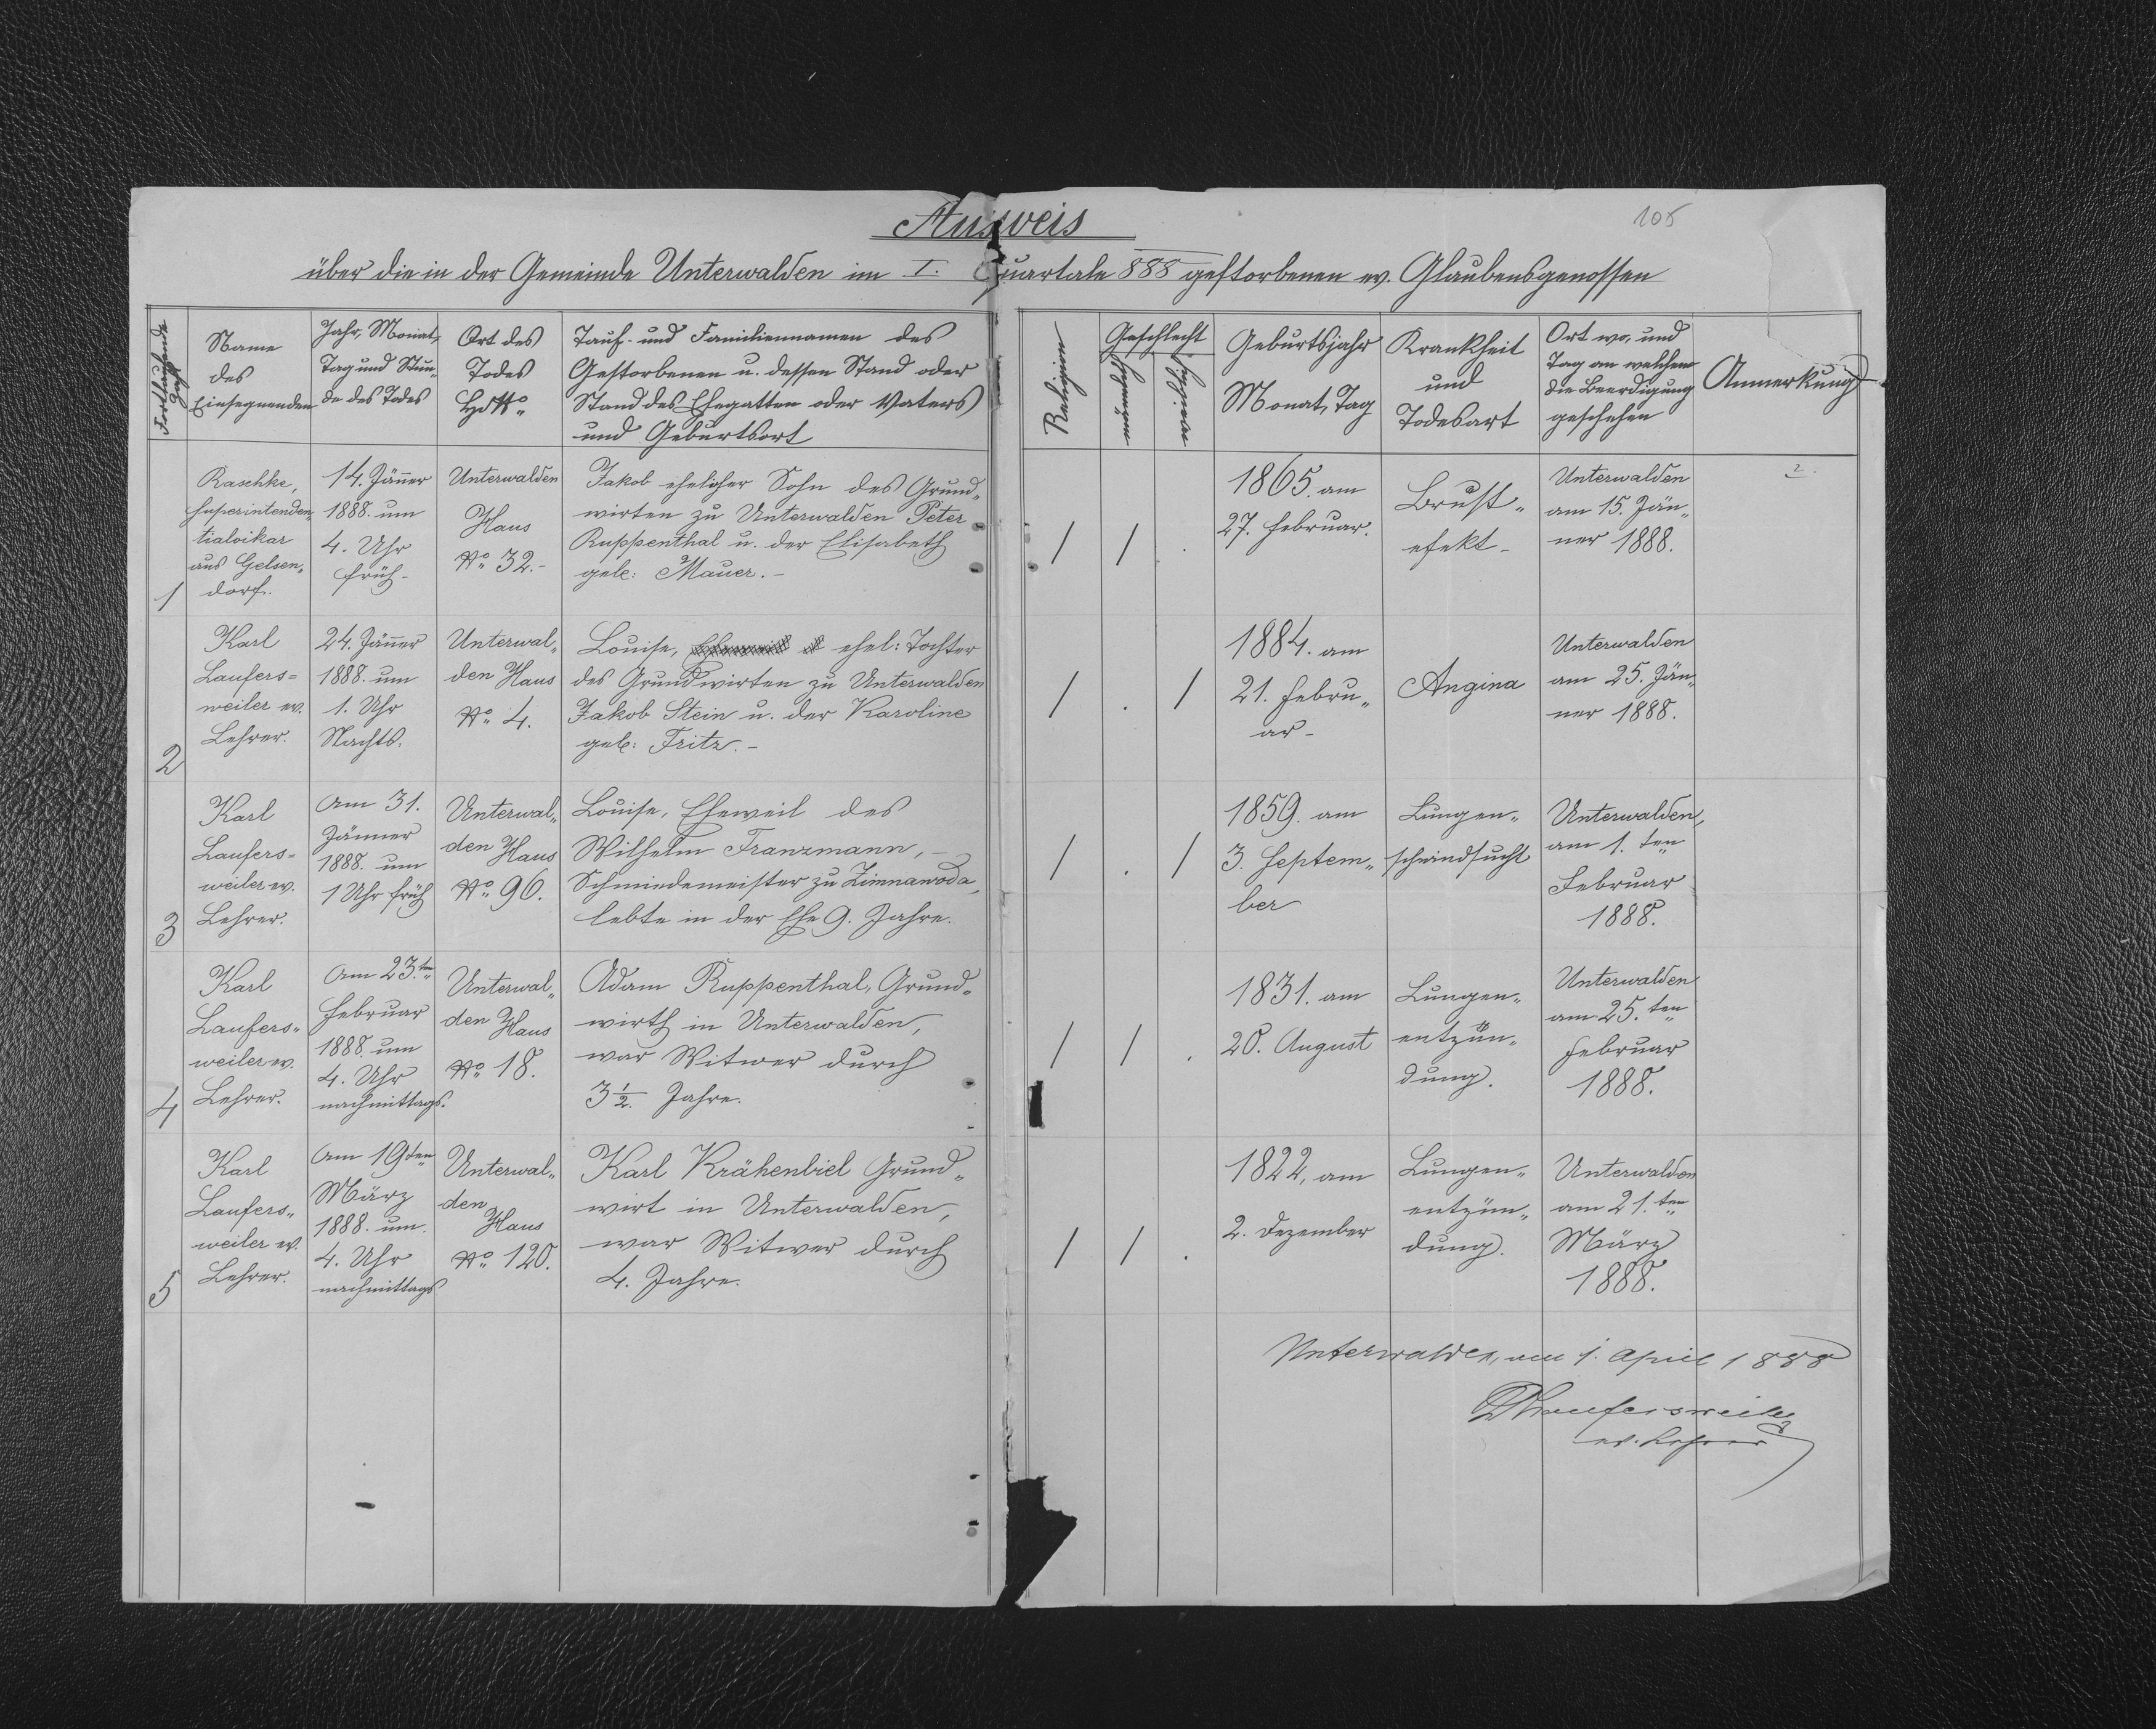 105
Ausweis
über die in der Gemeinde Unterwalden im I. Quartale 888 gestorbenen ev. Glaubensgenossen
Fortlaufende Zahl
Name
des
Einsegnenden
Jahr, Monat,
Tag und Stun„
de des Todes
Ort des
Todes
HsNo
Tauf- und Familiennamen des
Gestorbenen u. dessen Stand oder
Stand des Ehegatten oder Vaters
und Geburtsort
Religion
Geschlecht
Geburtsjahr
Monat, Tag
Krankheit
und
Todesart
Ort wo, und
Tag an welchem
die Beerdigung
geschehen
Anmerkung
1
Raschke,
Superintenden„
tialvikar
aus Gelsen„
dorf.
14. Jänner
1888. um
4. Uhr
früh-
Unterwalden
Haus
No 32.-
Jakob ehelicher Sohn des Grund„
wirten zu Unterwalden Peter
Ruppenthal u. der Elisabeth
geb: Mauer.-
/ / .
1865. am
27. Februar.
Brust„
efekt-
Unterwalden
am 15. Jän„
ner 1888.
2.
2
Karl
Laufers=
weiler ev.
Lehrer.
24. Jänner
1888. um
1. Uhr
Nachts.
Unterwal„
den Haus
No 4.
Louise, ehel: Tochter
des Grundwirten zu Unterwalden
Jakob Stein u. der Karoline
geb: Fritz.-
/ . /
1884. am
21. Febru„
ar-
Angina
Unterwalden
am 25. Jän„
ner 1888.
3
Karl
Laufers=
weiler ev.
Lehrer.
Am 31.
Jänner
1888. um
1 Uhr früh
Unterwal„
den Haus
No 96.
Louise, Eheweib des
Wilhelm Franzmann,-
Schmiedemeister zu Zimnawoda,
lebte in der Ehe 9. Jahre.
/ . /
1859. am
3. Septem„
ber
Lungen„
schwindsucht
Unterwalden,
am 1. ten
Februar
1888.
4
Karl
Laufers„
weiler ev.
Lehrer.
Am 23. ten
Februar
1888. um
4. Uhr
nachmittags.
Unterwal„
den Haus
No 18.
Adam Ruppenthal, Grund„
wirth in Unterwalden,
war Witwer durch
3 1/2. Jahre.
/ / .
1831. am
20. August
Lungen„
entzün„
dung.
Unterwalden
am 25. ten
Februar
1888.
5
Karl
Laufers„
weiler ev.
Lehrer.
Am 19ten
März
1888. um
4. Uhr
nachmittags
Unterwal„
den
Haus
No 120.
Karl Krähenbiel Grund„
wirt in Unterwalden,
war Witwer durch
4. Jahre.
/ / .
1822, am
2. Dezember
Lungen„
entzün„
dung.
Unterwalden
am 21. ten
März
1888.
Unterwalden, am 1. April 1888
Laufersweiler
ev. Lehrer